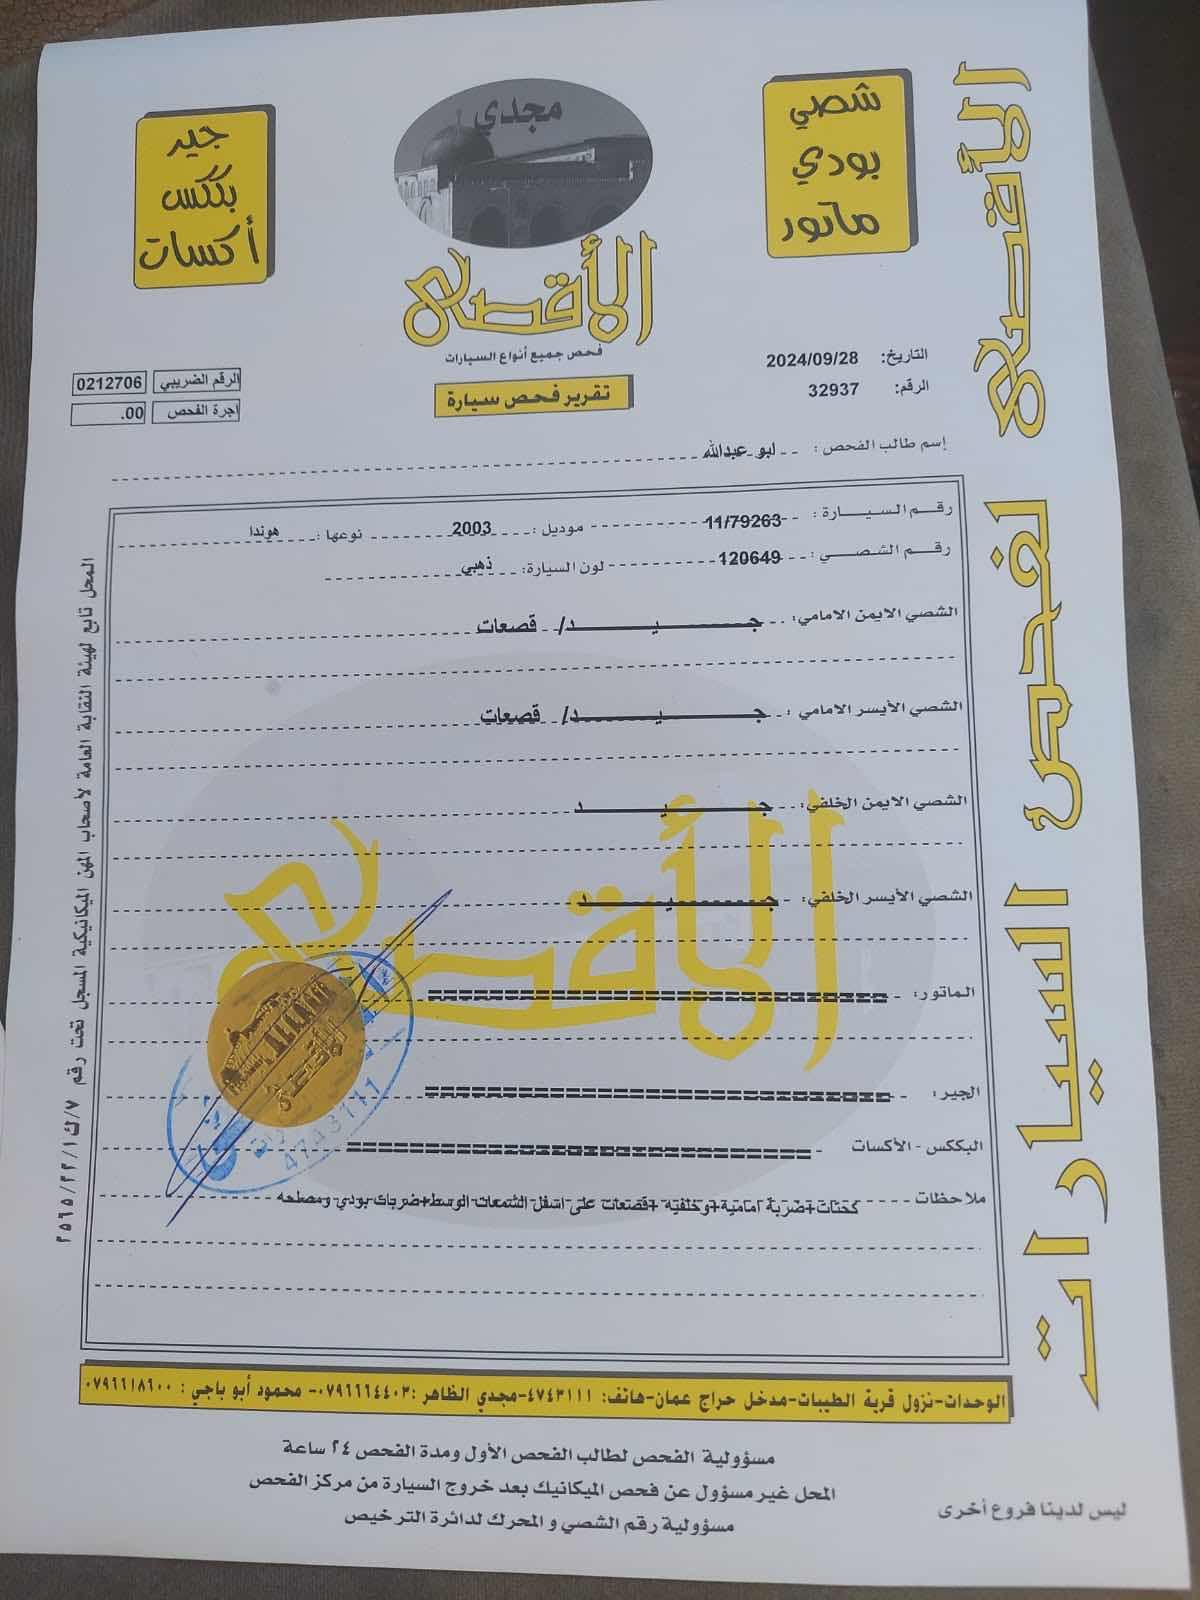 شصي
بودي
ماتور
مجدي
الأقصى
فحص جميع أنواع السيارات
جير
بككس
أكسات
الأقصى لفحص السيارات
التاريخ: 2024/09/28
الرقم: 32937
تقرير فحص سيارة
الرقم الضريبي 0212706
اجرة الفحص .00
إسم طالب الفحص : ابو عبدالله
رقم السيارة : 11/79263 موديل : 2003 نوعها : هوندا
رقم الشصي : 120649 لون السيارة: ذهبي
الشصي الايمن الامامي: جيد/ قصعات
الشصي الأيسر الامامي : جيد/ قصعات
الشصي الايمن الخلفي: جيد
الشصي الأيسر الخلفي: جيد
الأقصى
الماتور: ==============================
الجير: ==============================
البككس - الأكسات ==============================
ملاحظات كحتات+ضربة امامية+وخلفيه+قصعات على اسفل الشمعات الوسط+ضربات بودي ومصلحه
الأقصى
4743111
المحل تابع لهيئة النقابة العامة لأصحاب المهن الميكانيكية المسجل تحت رقم ٧/ك٢٢/١/٢٥٦٥
الوحدات-نزول قرية الطيبات-مدخل حراج عمان-هاتف: ٤٧٤٣١١١-مجدي الظاهر :٠٧٩٦٦٦٤٤٠٣- محمود أبو باجي : ٠٧٩٦٦١٨٦٠٠
مسؤولية الفحص لطالب الفحص الأول ومدة الفحص ٢٤ ساعة
المحل غير مسؤول عن فحص الميكانيك بعد خروج السيارة من مركز الفحص
مسؤولية رقم الشصي و المحرك لدائرة الترخيص
ليس لدينا فروع أخرى